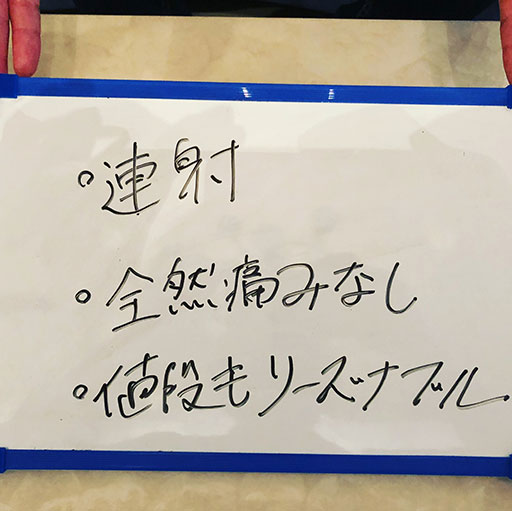 。連射
。全然痛みなし
。値段もリーズナブル